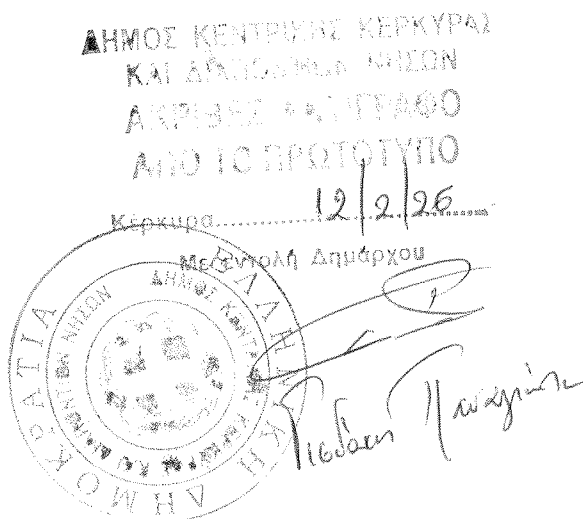 ΔΗΜΟΣ ΚΕΝΤΡΙΚΗΣ ΚΕΡΚΥΡΑΣ
ΚΑΙ ΔΙΑΠΟΝΤΙΩΝ ΝΗΣΩΝ
ΑΚΡΙΒΕΣ ΑΝΤΙΓΡΑΦΟ
ΑΠΟ ΤΟ ΠΡΩΤΟΤΥΠΟ
Κέρκυρα..........12/2/26..........
Με εντολή Δημάρχου
ΕΛΛΗΝΙΚΗ ΔΗΜΟΚΡΑΤΙΑ
ΔΗΜΟΣ ΚΕΝΤΡΙΚΗΣ ΚΕΡΚΥΡΑΣ ΚΑΙ ΔΙΑΠΟΝΤΙΩΝ ΝΗΣΩΝ